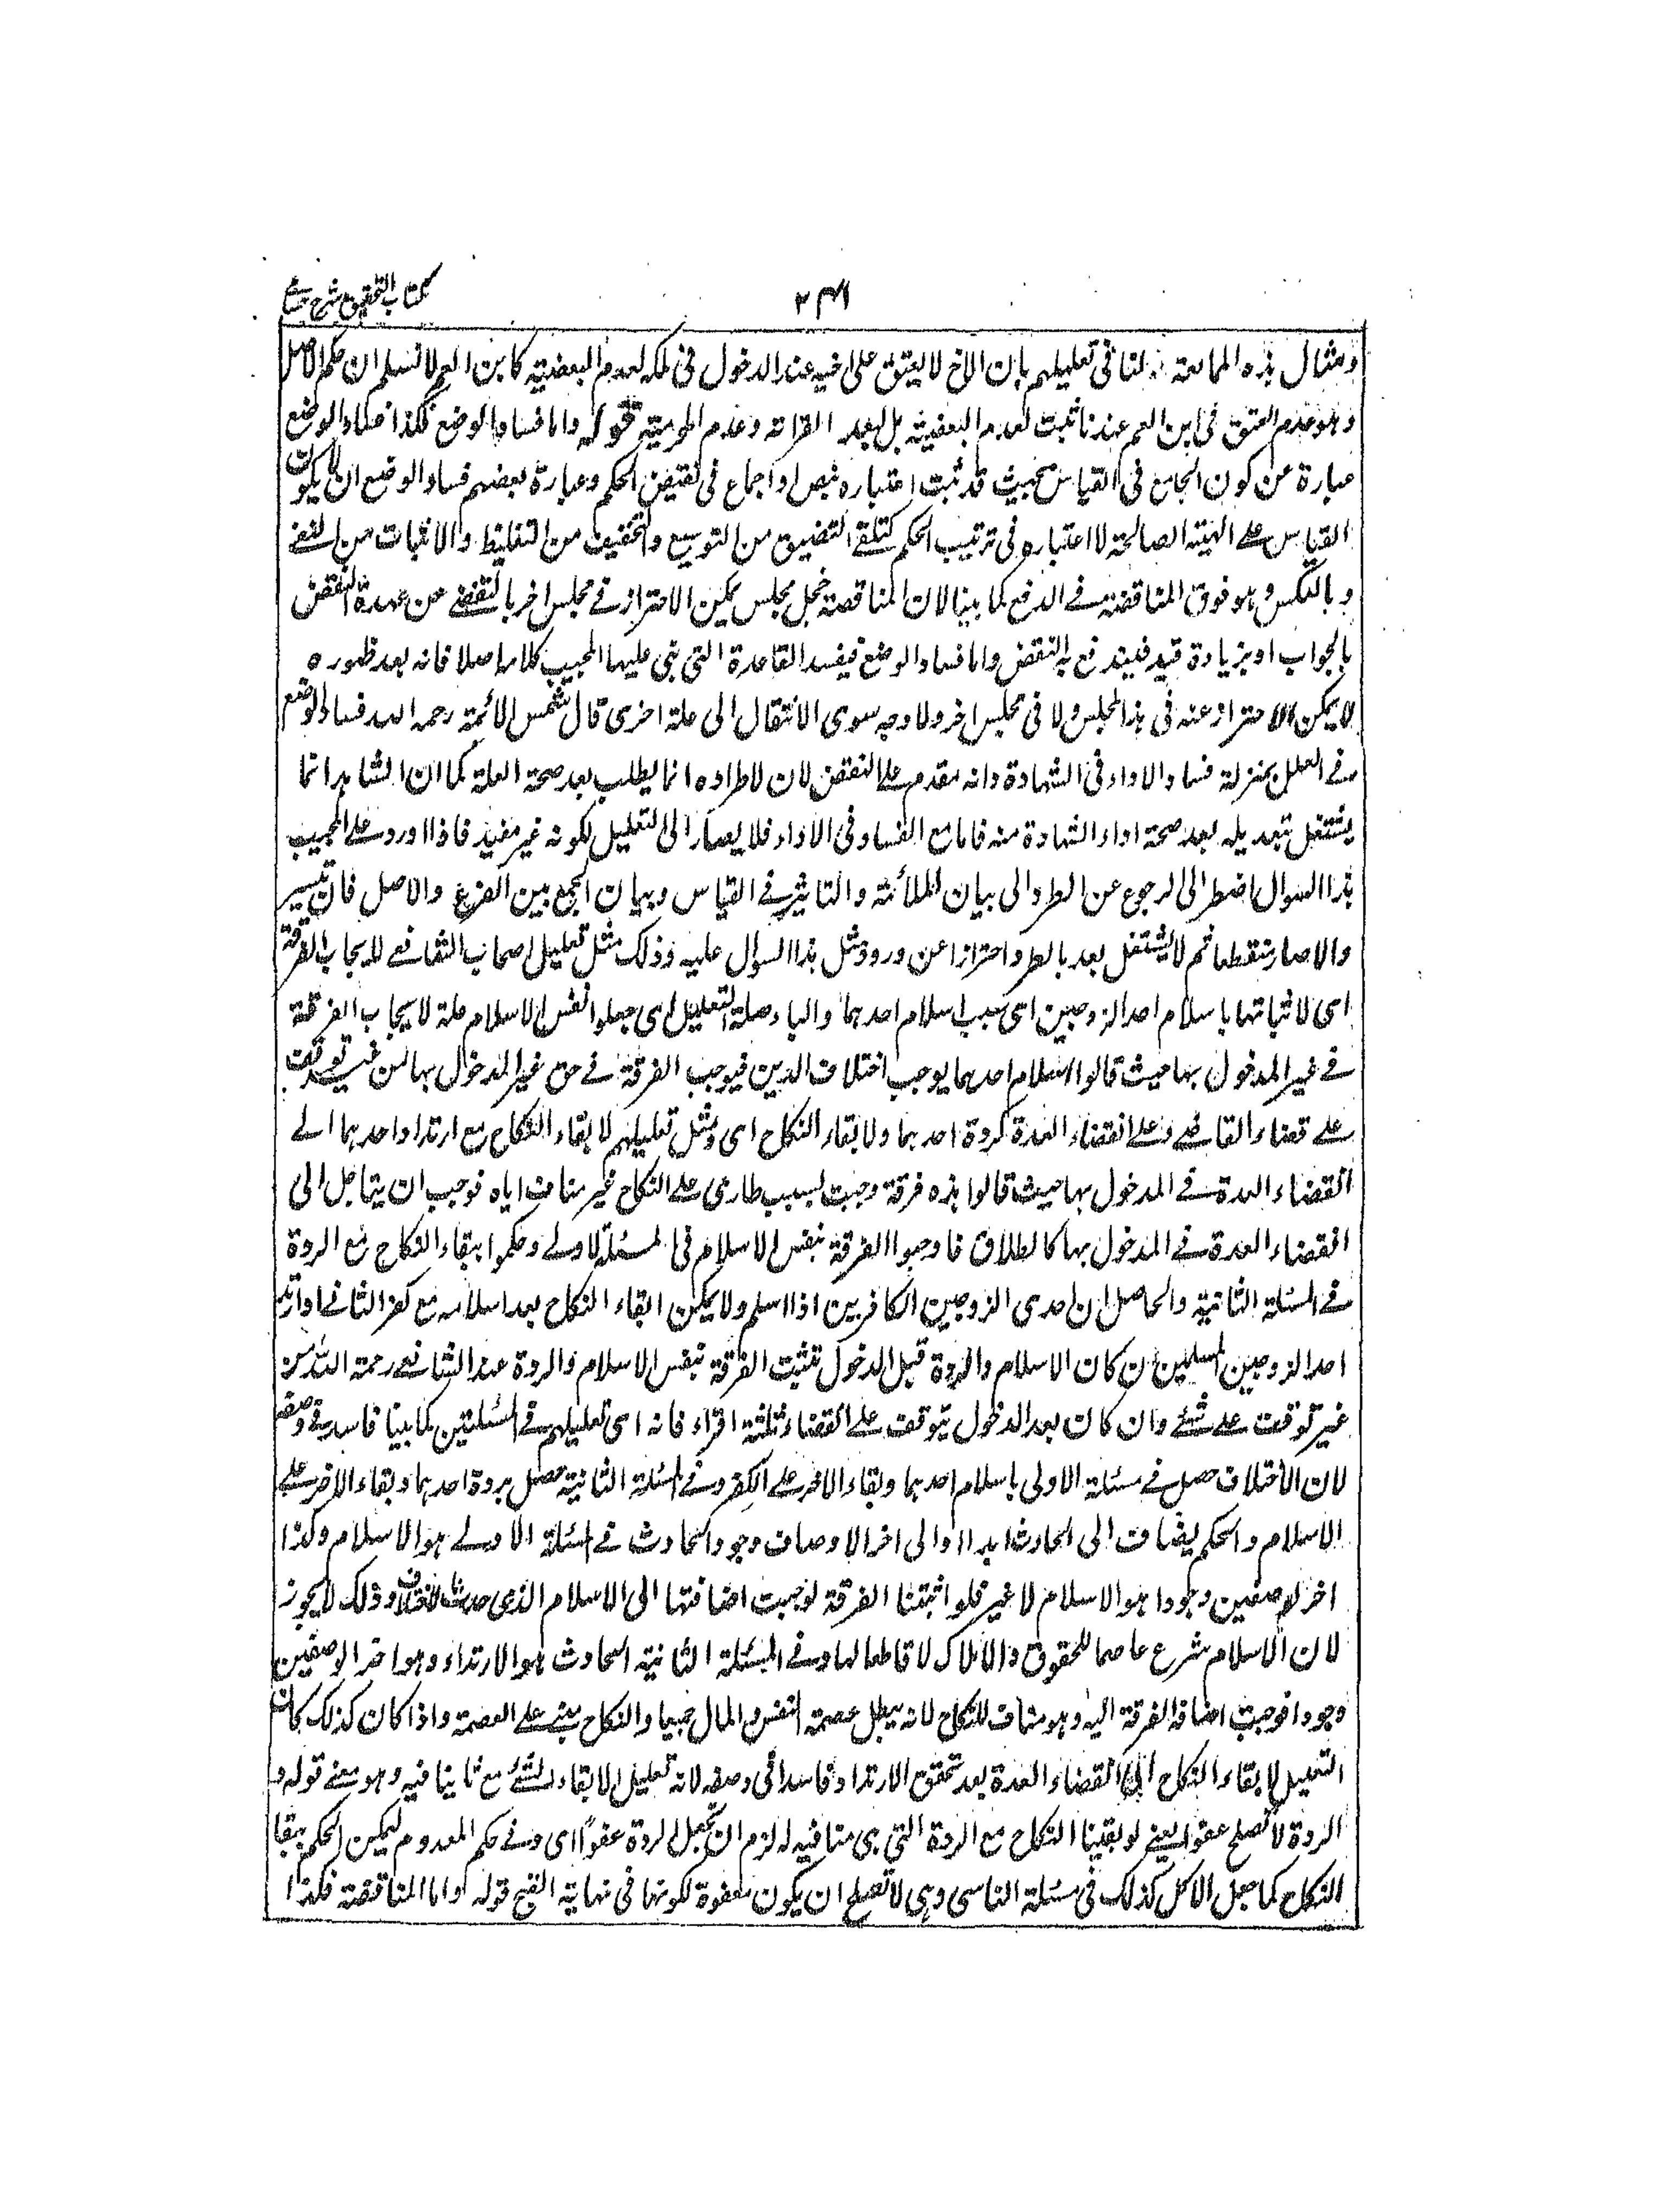 كتاب التحقيق شرح حسامي
٢٤١
ومثال هذه الممانعة قولنا في تعليلهم بان الاخ لا يعتق على اخيه عند الدخول في ملكه لعدم البعضية كابن العم لا نسلم ان حكم الاصل
وهو عدم العتق في ابن العم عندنا ثبت لعدم البعضية بل لبعد القرابة وعدم المحرمية قوله واما فساد الوضع فكذا فساد الوضع
عبارة عن كون الجامع في القياس بحيث قد ثبت اعتباره بنص او اجماع في نقيض الحكم وعبارة بعضهم فساد الوضع ان لا يكون
القياس على الهيئة الصالحة لاعتباره في ترتيب الحكم كتلقي التضييق من التوسيع والتخفيف من التغليظ والاثبات من النفي
وبالعكس وهو فوق المناقضة في الدفع كما بينا الا ان المناقضة خجل مجلس يمكن الاحتراز في مجلس اخر بالتفصي عن عهدة النقض
بالجواب او بزيادة قيد فيندفع به النقض واما فساد الوضع فيفسد القاعدة التي بنى عليها المجيب كلامه اصلا فانه بعد ظهوره
لا يمكن الاحتراز عنه في هذا المجلس ولا في مجلس اخر ولا وجه سوى الانتقال الى علة اخرى قال شمس الائمة رحمه الله فساد الوضع
في العلل بمنزلة فساد الاداء في الشهادة وانه مقدم على النقض لان الاطراد انما يطلب بعد صحة العلة كما ان الشاهد انما
يشتغل بتعديله بعد صحة اداء الشهادة منه فاما مع الفساد في الاداء فلا يصار الى التعليل لكونه غير مفيد فاذا اورد على المجيب
هذا السوال اضطر الى الرجوع عن الطرد الى بيان الملائمة والتاثير في القياس وبيان الجمع بين الفرع والاصل فان تيسر
والا صار منقطعا ثم لا يشتغل بعد بالطرد احترازا عن ورود مثل هذا السوال عليه وذلك مثل تعليل اصحاب الشافعي لايجاب الفرقة
اى لاثباتها باسلام احد الزوجين اى بسبب اسلام احدهما والباء صلة التعليل اى جعلوا نفس الاسلام علة لايجاب الفرقة
في غير المدخول بها حيث قالوا اسلام احدهما يوجب اختلاف الدين فيوجب الفرقة في حق غير المدخول بها من غير توقف
على قضاء القاضي وعلى انقضاء العدة كردة احدهما ولابقاء النكاح اى ومثل تعليلهم لابقاء النكاح مع ارتداد احدهما الى
انقضاء العدة في المدخول بها حيث قالوا هذه فرقة وجبت بسبب طارى على النكاح غير مناف اياه فوجب ان يتاجل الى
انقضاء العدة في المدخول بها كالطلاق فاوجبوا الفرقة بنفس الاسلام في المسئلة الاولى وحكموا ببقاء النكاح مع الردة
في المسئلة الثانية والحاصل ان احدى الزوجين الكافرين اذا اسلم ولا يمكن ابقاء النكاح بعد اسلامه مع كفر الثاني او ارتد
احد الزوجين المسلمين ان كان الاسلام والردة قبل الدخول تثبت الفرقة بنفس الاسلام والردة عند الشافعي رحمة الله من
غير توقف على شئ وان كان بعد الدخول يتوقف على انقضاء ثلثة اقراء فانه اى تعليلهم في المسئلتين كما بينا فاسد في وضعه
لان الاختلاف حصل في مسئلة الاولى باسلام احدهما وبقاء الاخر على الكفر وفي المسئلة الثانية حصل بردة احدهما وبقاء الاخر على
الاسلام والحكم يضاف الى الحادث ابدا او الى اخر الاوصاف وجودا والحادث في المسئلة الاولى هو الاسلام وكذا
اخر الوصفين وجودا هو الاسلام لا غير فلو اثبتنا الفرقة لوجبت اضافتها الى الاسلام الذى حدث الاختلاف وذلك لا يجوز
لان الاسلام شرع عاصما للحقوق والاملاك لا قاطعا لها وفي المسئلة الثانية الحادث هو الارتداد وهو اخر الوصفين
وجودا فوجبت اضافة الفرقة اليه وهو مناف للنكاح لانه يبطل عصمة النفس والمال جميعا والنكاح مبني على العصمة واذا كان كذلك كان
التعليل لابقاء النكاح الى انقضاء العدة بعد تحقق الارتداد فاسدا في وضعه لانه تعليل لابقاء الشئ مع ما ينافيه وهو معنى قوله و
الردة لا تصلح عفوا يعني لو بقينا النكاح مع الردة التي هي منافية له لزم ان تجعل الردة عفوا اى في حكم المعدوم ليمكن الحكم ببقاء
النكاح كما جعل الاكل كذلك في مسئلة الناسى وهى لا تصلح ان يكون معفوة لكونها في نهاية القبح قوله واما المناقضة فكذا